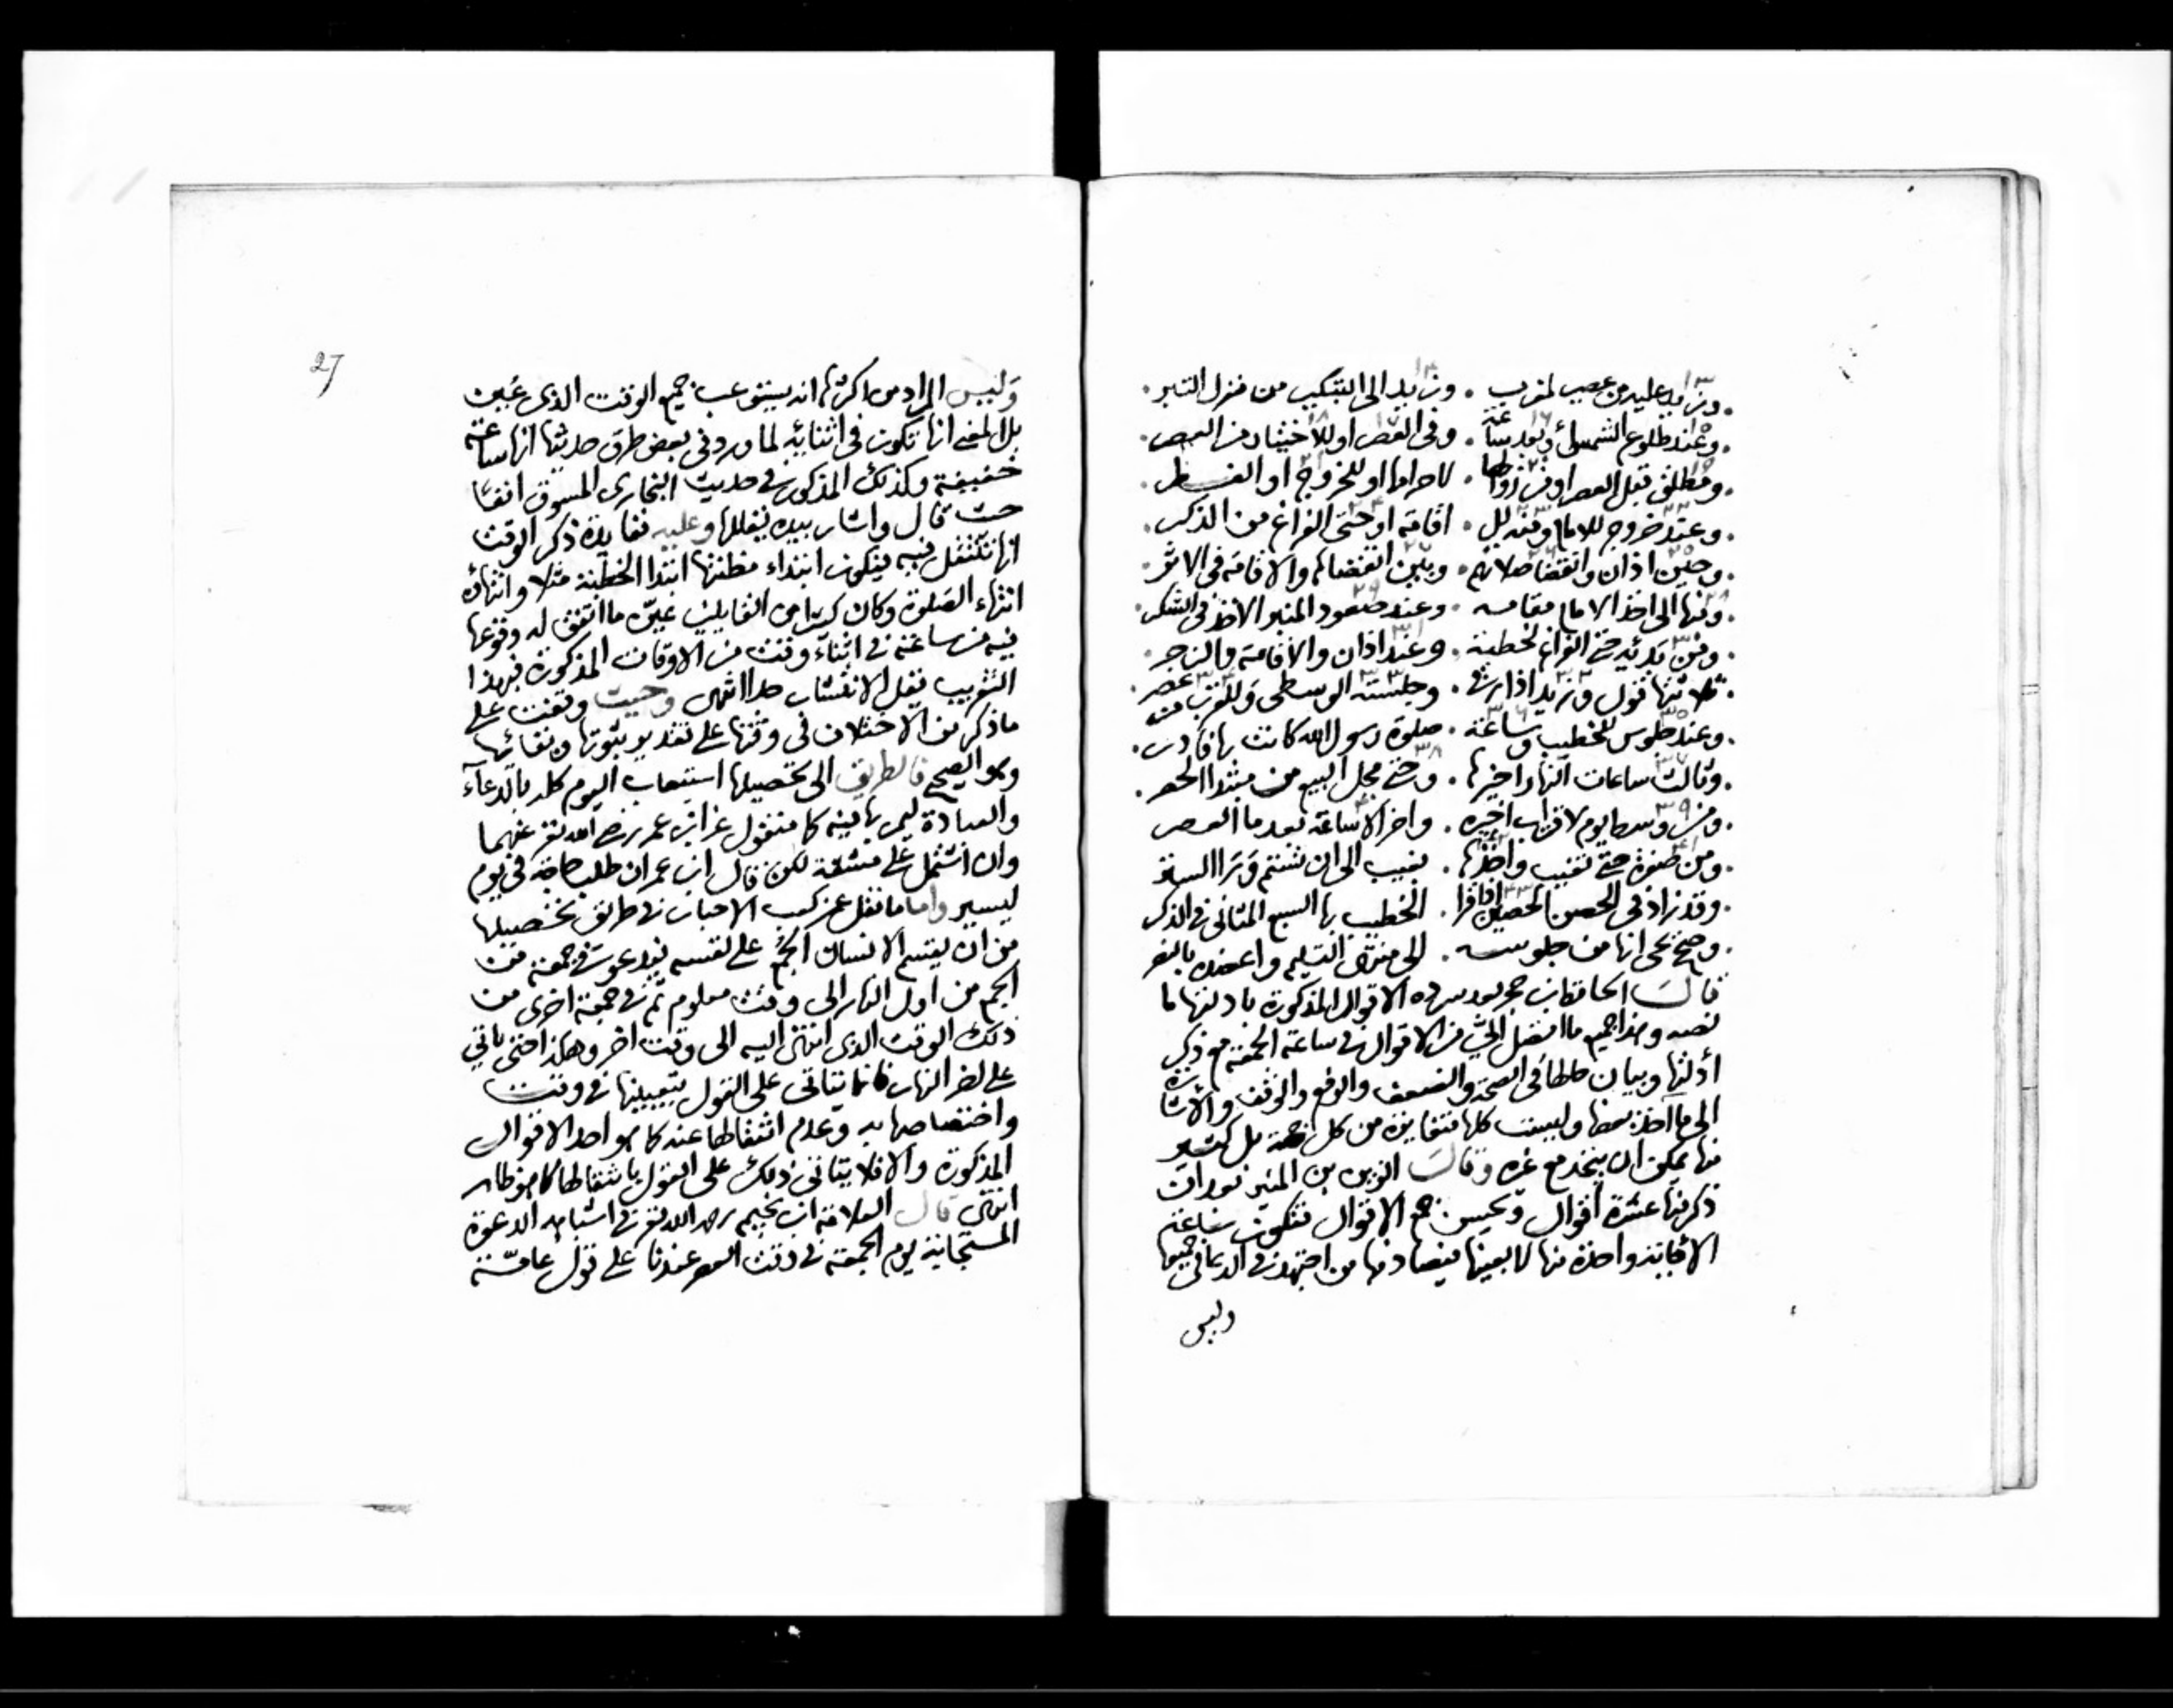 وزيد عليه من عصر لمغرب . وزيد الى التكبير من منزل التبر .
وعند طلوع الشمس او بعد ساعة . وفي العصر او للاختيار من العصر .
ومطلق قبل العصر او من زوالها . لاحرامها او للخروج او
وعند خروج للامام ومنه لل . اقامة او حتى الفراغ من الذكر .
وحين اذان وانقضا صلاتهم . وبين انقضاها والاقامة في الاثر .
ومنها الى اخذ الامام مقامه . وعند صعود المنبر
ومن بدئه حتى الفراغ لخطبة . وعند اذان والاقامة والزجر .
ثلاثتها قول وزيد اذا رقى . وجلسته الوسطى
وعند جلوس للخطيب وساعة . صلوة رسول الله كانت بها
وثالث ساعات النهار اخيرها . وحتى محل البيع من مبتدا
ومن وسط يوم لاقتراب اخيره . واخر الاساعة بعد ما العصر
ومن صفرة حتى تغيب واخذها . تغيب الى ان تستتم
وقد زاد في الحصن الحصين اذا قرا . الخطيب بها السبع المثاني في الذكر
وصحح يحيى انها من جلوسه . الى منتهى التسليم واعضده بالنصر
قال الحافظ ابن حجر بعد سرده الاقوال المذكورة بادلتها ما
نصه وهذا جميع ما اتصل الي من الاقوال في ساعة الجمعة مع ذكر
أدلتها وبيان حالها في الصحة والضعف والرفع والوقف والاشارة
الى ما اخذ بعضها وليست كلها متغايرة من كل جهة بل كثير
منها يمكن ان يتحد مع غيره وقال الزين بن المنير بعد ان
ذكر منها عشرة اقوال ويحسن جمع الاقوال فتكون ساعة
الاجابة واحدة منها لا بعينها فيصادفها من اجتهد في الدعا في جميعها
وليس
27
وليس المراد من اكثرها انه يستوعب جميع الوقت الذي عين
بل المعنى انها تكون في اثنائه لما ورد في بعض طرق حديثها انها ساعة
خفيفة وكذلك المذكور في حديث البخاري المسوق انفا
حيث قال واشار بيده يقللها وعليه ففايدة ذكر الوقت
انها تنتقل فيه فيكون ابتداء مظنتها ابتدا الخطبة مثلا وانتهاؤه
انتهاء الصلوة وكان كثيرا من القايلين عين ما اتفق له وقوعها
فيه من ساعة في اثناء وقت من الاوقات المذكورة فبهذا
التقريب يقل الانتشار جدا انتهى وحيث وقفت على
ماذكر من الاختلاف في وقتها على تقدير ثبوتها وبقائها
وهو الصحيح فالطريق الى تحصيلها استيعاب اليوم كله بالدعاء
والعبادة ليمر بها فيه كما منقول عن ابن عمر رضي الله تع عنهما
وان اشتمل على مشقة لكن قال ابن عمر ان طلب حاجة في يوم
ليسير واما ما نقل عن كعب الاحبار في طريق تحصيلها
من ان يقسم الانسان الجمع على نفسه فيدعو في جمعة من
الجمع من اول النهار الى وقت معلوم ثم في جمعة اخرى من
ذلك الوقت الذي انتهى اليه الى وقت اخر وهكذا حتى ياتي
على اخر النهار فانما يتاتى على القول بتعيينها في وقت
واختصاصها به وعدم انتقالها عنه كما هو احد الاقوال
المذكورة والا فلا يتاتى ذلك على القول بانتقالها كما هو ظاهر
انتهى قال العلامة ابن نجيم رحمه الله تع في اشباهه الدعوة
المستجابة يوم الجمعة في وقت العصر عندنا على قول عامة